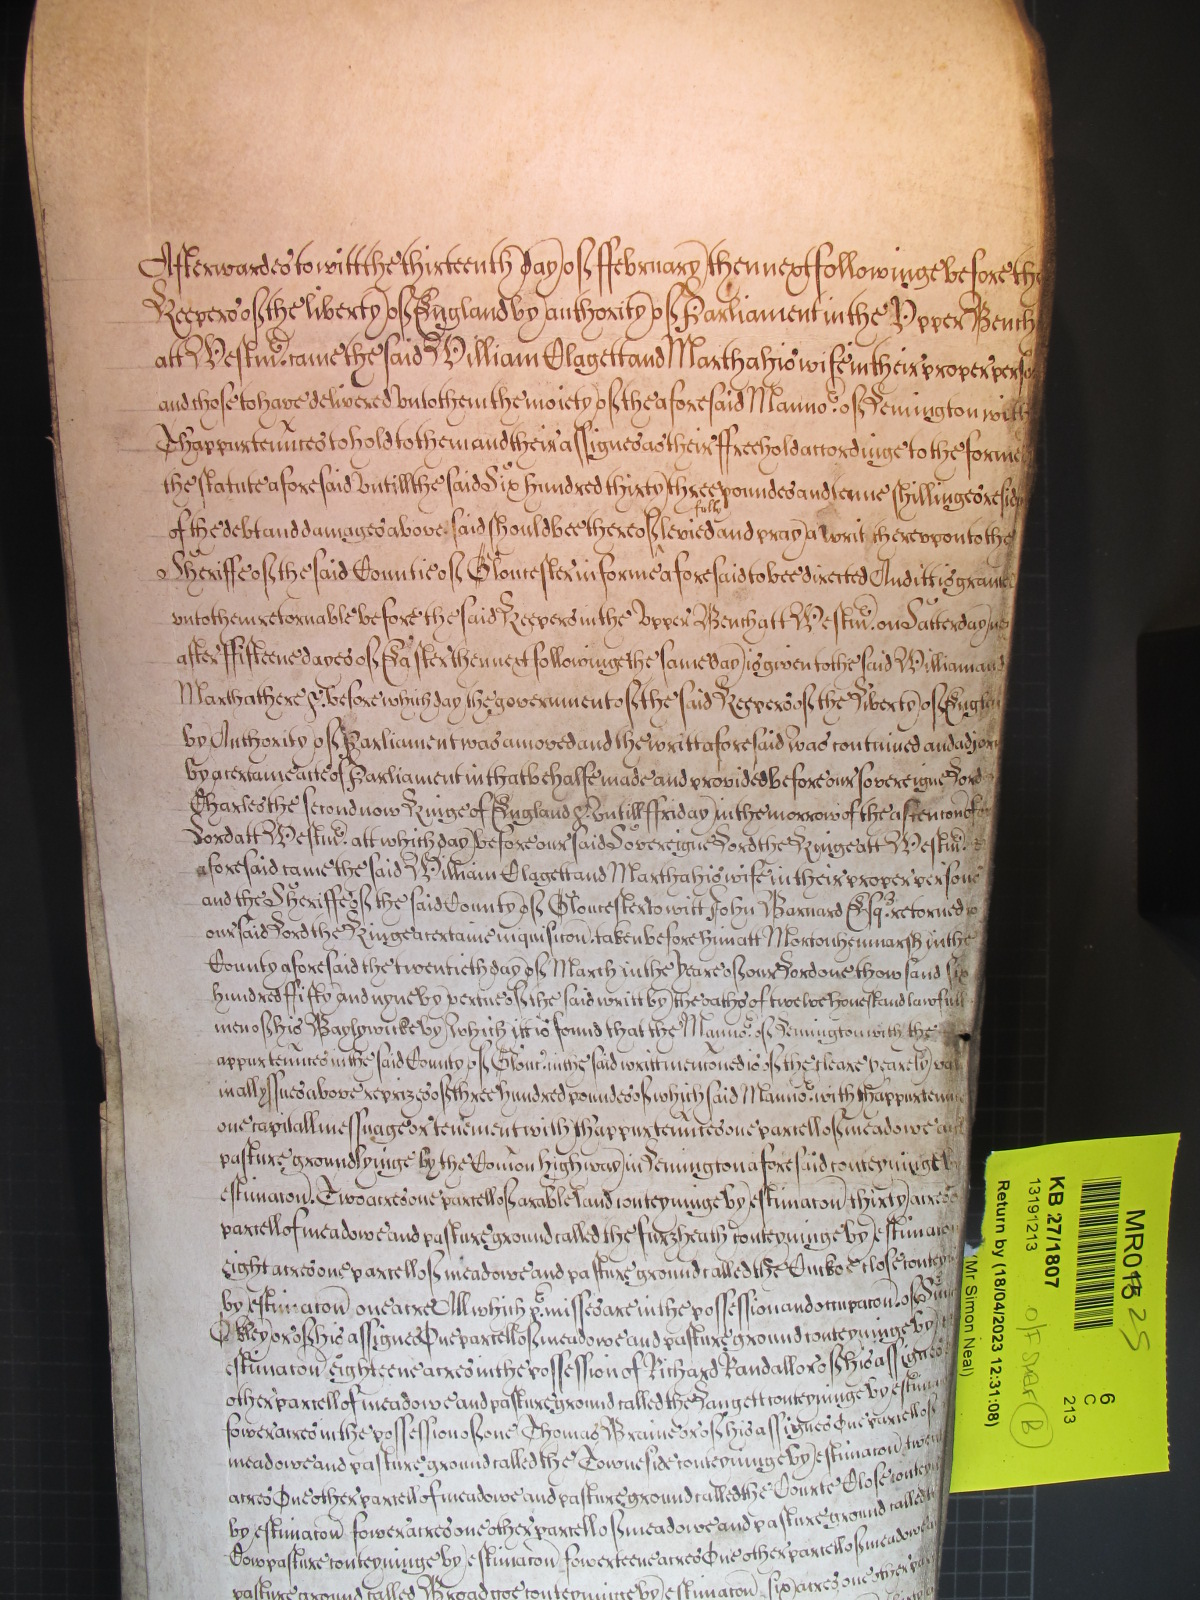 Afterwardes to witt the thirteenth day of ffebruary then next followinge before the
Keepers of the liberty of England by authority of Parliament in the Vpper Bench
att Westm̃. came the said William Clagett and Martha his wife in their proper perso
and chose to have delivered vnto them the moiety of the aforesaid Manno.r of Lemington with
Thappurtenñces to hold to them and their assignes as their ffreehold accordinge to the forme
the statute aforesaid vntill the said Six hundred thirty three poundes and tenne shillinges resid
of the debt and damages above said should bee thereof fully levied and pray a writ therevpon to the
Sheriffe of the said Countie of Gloucester in forme aforesaid to bee directed And itt is graunt
vnto them retornable before the said Keepers in the Vpper Bench att Westm̃. on Satterday
after ffifteene dayes of Easter then next followinge the same day is given to the said William and
Martha there &c. before which day the government of the said Keepers of the Liberty of Engla
by Authority of Parliament was amoved and the writt aforesaid was contined and adiorn
by a certaine acte of Parliament in that behalfe made and provided before our sovereigne Lord
Charles the second now Kinge of England &c vntill ffriday in the morrow of the ascention of
Lord att Westm̃. att which day before our said Sovereigne Lord the Kinge att Westm̃.
aforesaid came the said William Clagett and Martha his wife in their proper persons
and the Sheriffe of the said County of Gloucester to witt John Barnard Esq.r retorned
our said Lord the Kinge a certaine inquisicõn. taken before him att Morton henmarsh in the
County aforesaid the twentieth day of March in the yeare of our Lord one thowsand six
hundred ffifty and nyne by vertue of the said writt by the oaths of twelve honest and lawfull
men of his Baylywicke by which itt is found that the Manno.r of Lemington with the
appurtenñces in the said County of Glouc̃. in the said writt mencõned is of the cleare yearely val
in all yssues above reprizes of three hundred poundes of which said Manno.r with thappurtenñ
one capitall messuage or tenement with thappurtenñces one parcell of meadowe and
pasture ground lyinge by the Comõn high way in Lemington aforesaid conteyninge by
estimacõn. Two acres one parcell of arable Land conteyninge by estimacõn thirty acres
parcell of meadowe and pasture ground called the furzheath conteyninge by estimacõn
eight acres one parcell of meadowe and pasture ground called the Cuckoe close conteyn
by estimacõn one acre All which p̃misses are in the possession and occupacõn. of
Okley or of his assignes One parcell of meadowe and pasture ground conteyninge by
estimacõn eighteene acres in the possession of Richard Randall or of his assignes
other parcell of meadowe and pasture ground called the Langett conteyninge by estim
fower acres in the possession of one Thomas Braine or of his assignes One parcell of
meadowe and pasture ground called the Towneside conteyninge by estimacõn twen
acres One other parcell of meadowe and pasture ground called the Courte Close conteyn
by estimacõn fower acres one other parcell of meadowe and pasture ground called
Cowpasture conteyninge by estimacõn fowerteene acres One other parcell of meadowe
pasture ground called Broadgoe conteyninge by estimacõn six acres one other
MR018 25
6
C
213
KB 27/1807
13191213
Return by (18/04/2023 12:31:08)
(Mr Simon Neal)
B